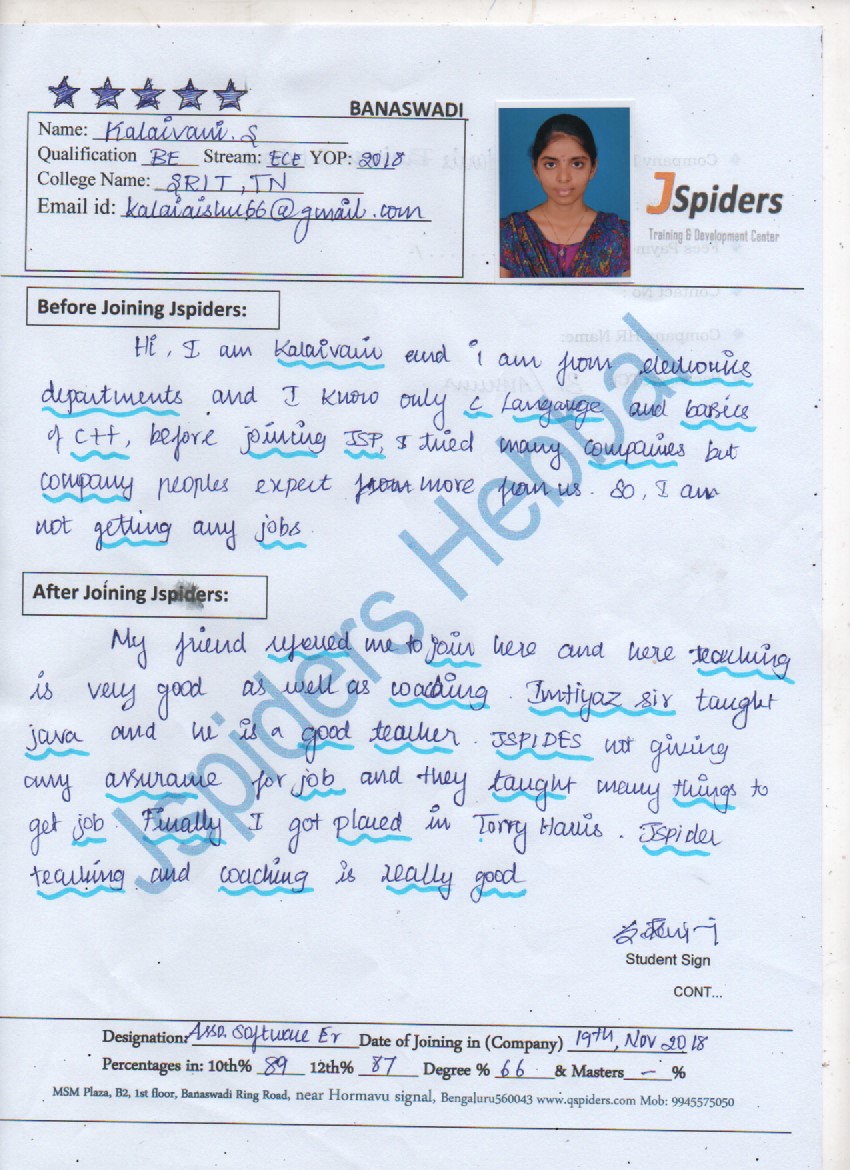 BANASWADI
Name: Kalaivani. S
Qualification BE Stream: ECE YOP: 2018
College Name: SRIT, TN
Email id: kalaiaishu66@gmail.com
JSpiders
Training & Development Center
Before Joining Jspiders:
Hi, I am Kalaivani and i am from electronics
departments and I know only c Langauge and basics
of C++, before joining JSP, I tried many companies but
company peoples expect more from us. So, I am
not getting any jobs.
After Joining Jspiders:
My friend me to join here and here teaching
is very good as well as coaching. Imtiyaz sir taught
java and he is a good teacher. JSPIDES not giving
any assurance for job and they taught many things to
get job. Finally I got placed in Torry Harris. Jspider
teaching and coaching is really good
Jspiders Hebbal
Student Sign
CONT...
Designation: Asso. Software Er Date of Joining in (Company) 19th, Nov 2018
Percentages in: 10th% 89 12th% 87 Degree % 66 & Masters - %
MSM Plaza, B2, 1st floor, Banaswadi Ring Road, near Hormavu signal, Bengaluru560043 www.qspiders.com Mob: 9945575050